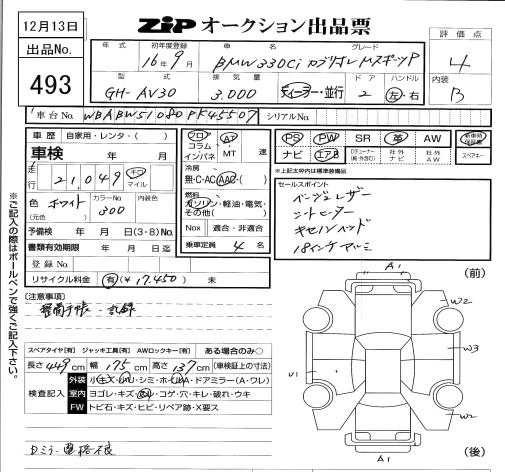 12月13日
ZiP オークション出品票
出品No.
493
年式
初年度登録
16年9月
車名
グレード
BMW330Ci カブリオレ MスポーツP
評価点
4
型式
GH-AV30
排気量
3.000
ディーラー・並行
ドア
2
ハンドル
左・右
内装
B
車台No.
WBABW51080PK45507
シリアルNo.
車歴
自家用・レンタ・( )
車検
年 月
走行
21,049
km
マイル
色
ホワイト
(元色 )
カラーNo.
300
内装色
予備検 年 月 日(3・8)
書類有効期限 年 月 日迄
登録No.
リサイクル料金 有(¥17.450) 未
フロア
コラム
インパネ
AT
・
MT
速
冷房
無・C・AC・AAC・( )
燃料
ガソリン・軽油・電気・
その他( )
Nox 適合・非適合
乗車定員 4 名
PS PW SR 革 AW
新車時
保証書
ナビ エアB
社外
ナビ
社外
AW
スペアキー
※上記太枠内は標準装備
セールスポイント
ベージュレザー
シートヒーター
キセノンヘッド
18インチアルミ
※ご記入の際はボールペンで強くご記入下さい。
[注意事項]
整備手帳・記録
スペアタイヤ[有] ジャッキ工具[有] AWロックキー[有] ある場合のみ○
長さ 449 cm 幅 175 cm 高さ 137 cm (車検証上の寸法)
検査記入
外装 小キズ・小U・シミ・ホイルA・ドアミラー(A・ワレ)
室内 ヨゴレ・キズ・スレ・コゲ・穴・キレ・破れ・ウキ
FW トビ石・キズ・ヒビ・リペア跡・X要ス
Dミラー電格不良
(前)
A1
W2
W3
U1
W2
A1
(後)